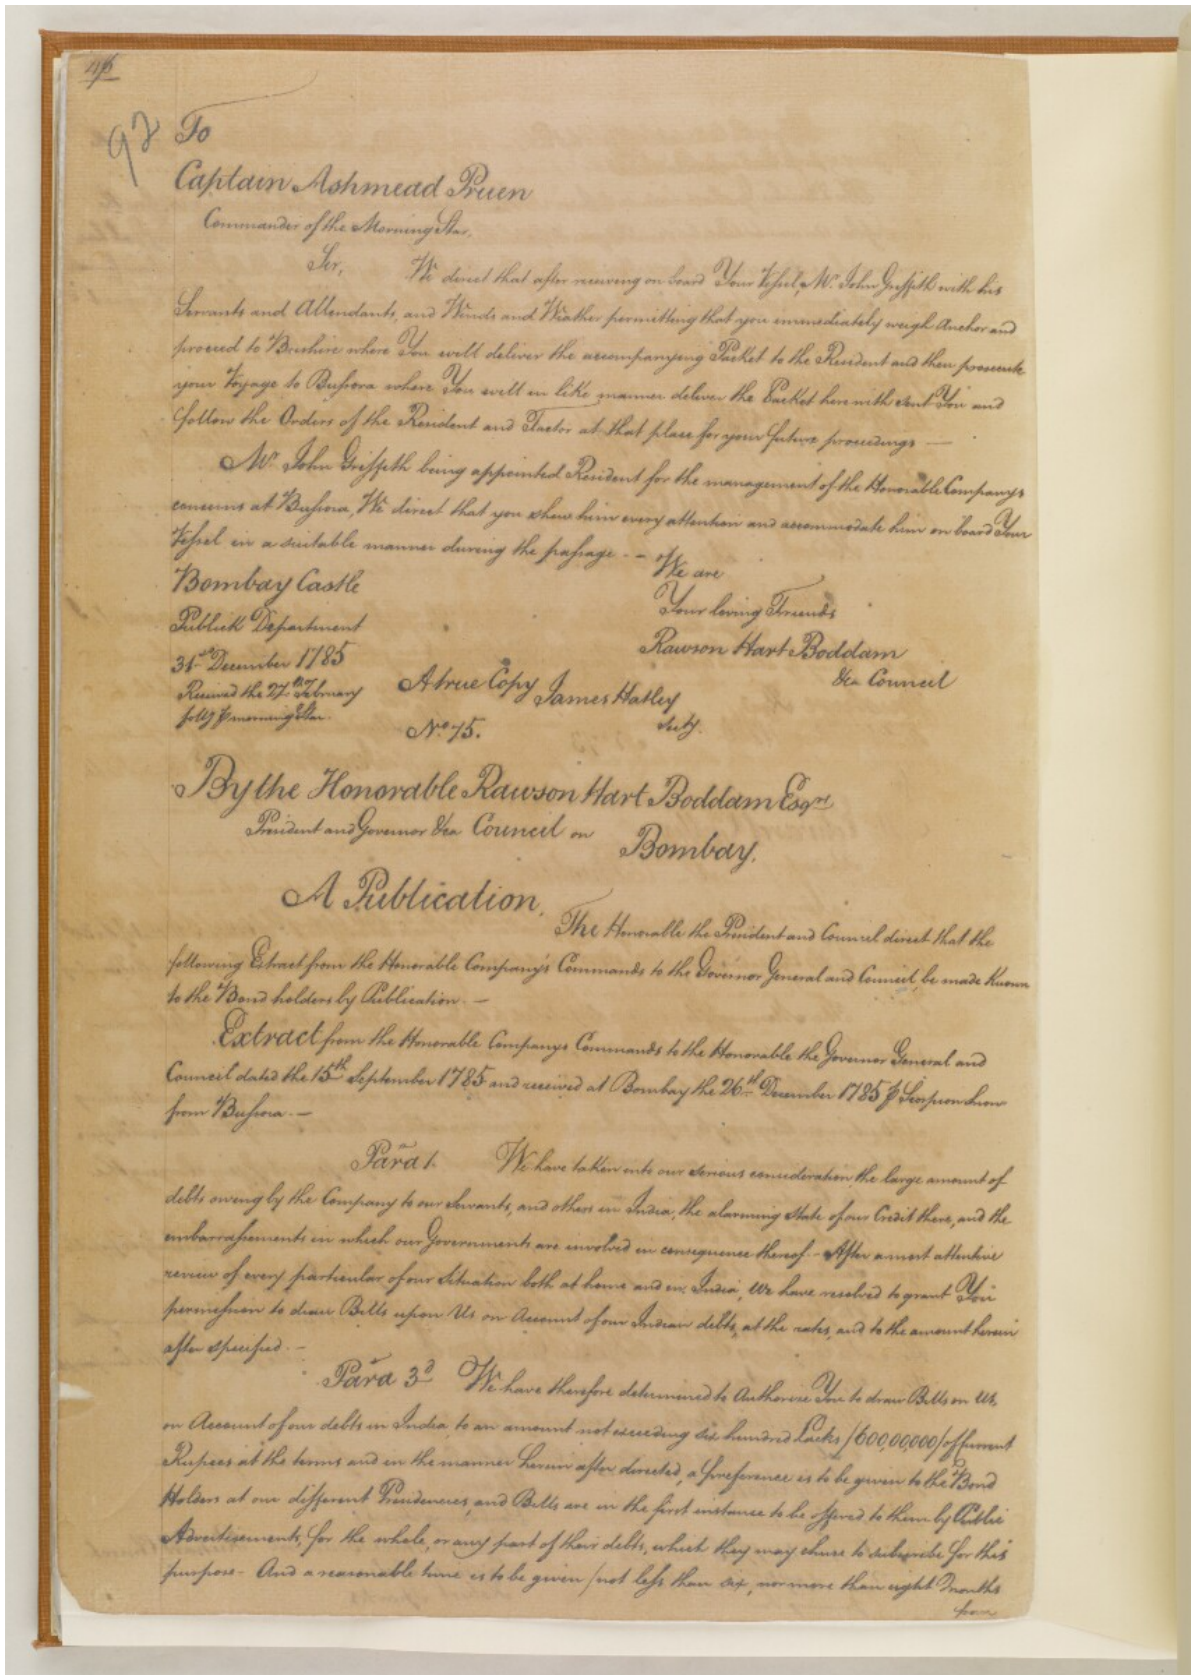 46
92
To
Captain Ashmead Pruen
Commander of the Morning Star,
Sir, We direct that after receiving on board Your Vessel, Mr. John Griffith with his
Servants and Attendants, and Winds and Weather permitting that you immediately weigh Anchor and
proceed to Bushire where You will deliver the accompanying Packet to the Resident and then prosecute
your Voyage to Bussora where You will in like manner deliver the Packet herewith sent You and
follow the Orders of the Resident and Factor at that place for your future proceedings —
Mr. John Griffith being appointed Resident for the management of the Honorable Companys
concerns at Bussora, We direct that you shew him every attention and accommodate him on board Your
Vessel in a suitable manner during the passage - - We are
Bombay Castle
Your loving Friends
Publick Department
Rawson Hart Boddam
31st December 1785
&ca Council
Received the 27th February
A true Copy James Hatley
follg ⅌ morning Star
Secty.
No. 75.
By the Honorable Rawson Hart Boddam Esqre
President and Governor &ca Council on
Bombay.
A Publication,
The Honorable the President and Council direct that the
following Extract from the Honorable Company's Commands to the Governor General and Council, be made known
to the Bond holders by Publication. —
Extract from the Honorable Companys Commands to the Honorable the Governor General and
Council dated the 15th September 1785 and received at Bombay the 26th December 1785 ⅌ Scorpion Snow
from Bussora. —
Para 1. We have taken into our serious consideration, the large amount of
debts owing by the Company to our Servants, and others in India, the alarming state of our Credit there, and the
embarrassements in which our Governments are involved in consequence thereof - After a most attentive
review of every particular of our Situation both at home and in India, We have resolved to grant You
permission to draw Bills upon Us on Account of our Indian debts, at the rates, and to the amount herein
after specified. —
Para 3d We have therefore determined to Authorize You to draw Bills on Us,
on Account of our debts in India to an amount not exceeding six hundred Lacks /600,00,000/ of Current
Rupees at the terms and in the manner herein after directed, a preference is to be given to the Bond
Holders at our different Presidencies, and Bills are in the first instance to be offered to them by Public
Advertisements, for the whole, or any part of their debts, which they may chuse to subscribe for this
purpose - And a reasonable time is to be given /not less than six, nor more than eight Months
from